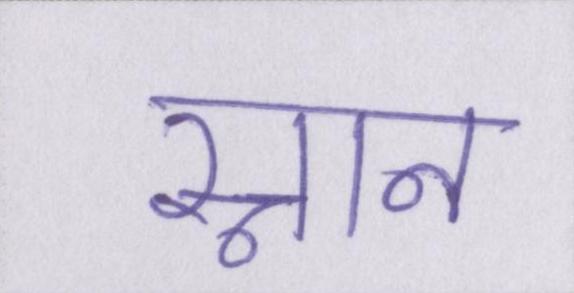 स्नान